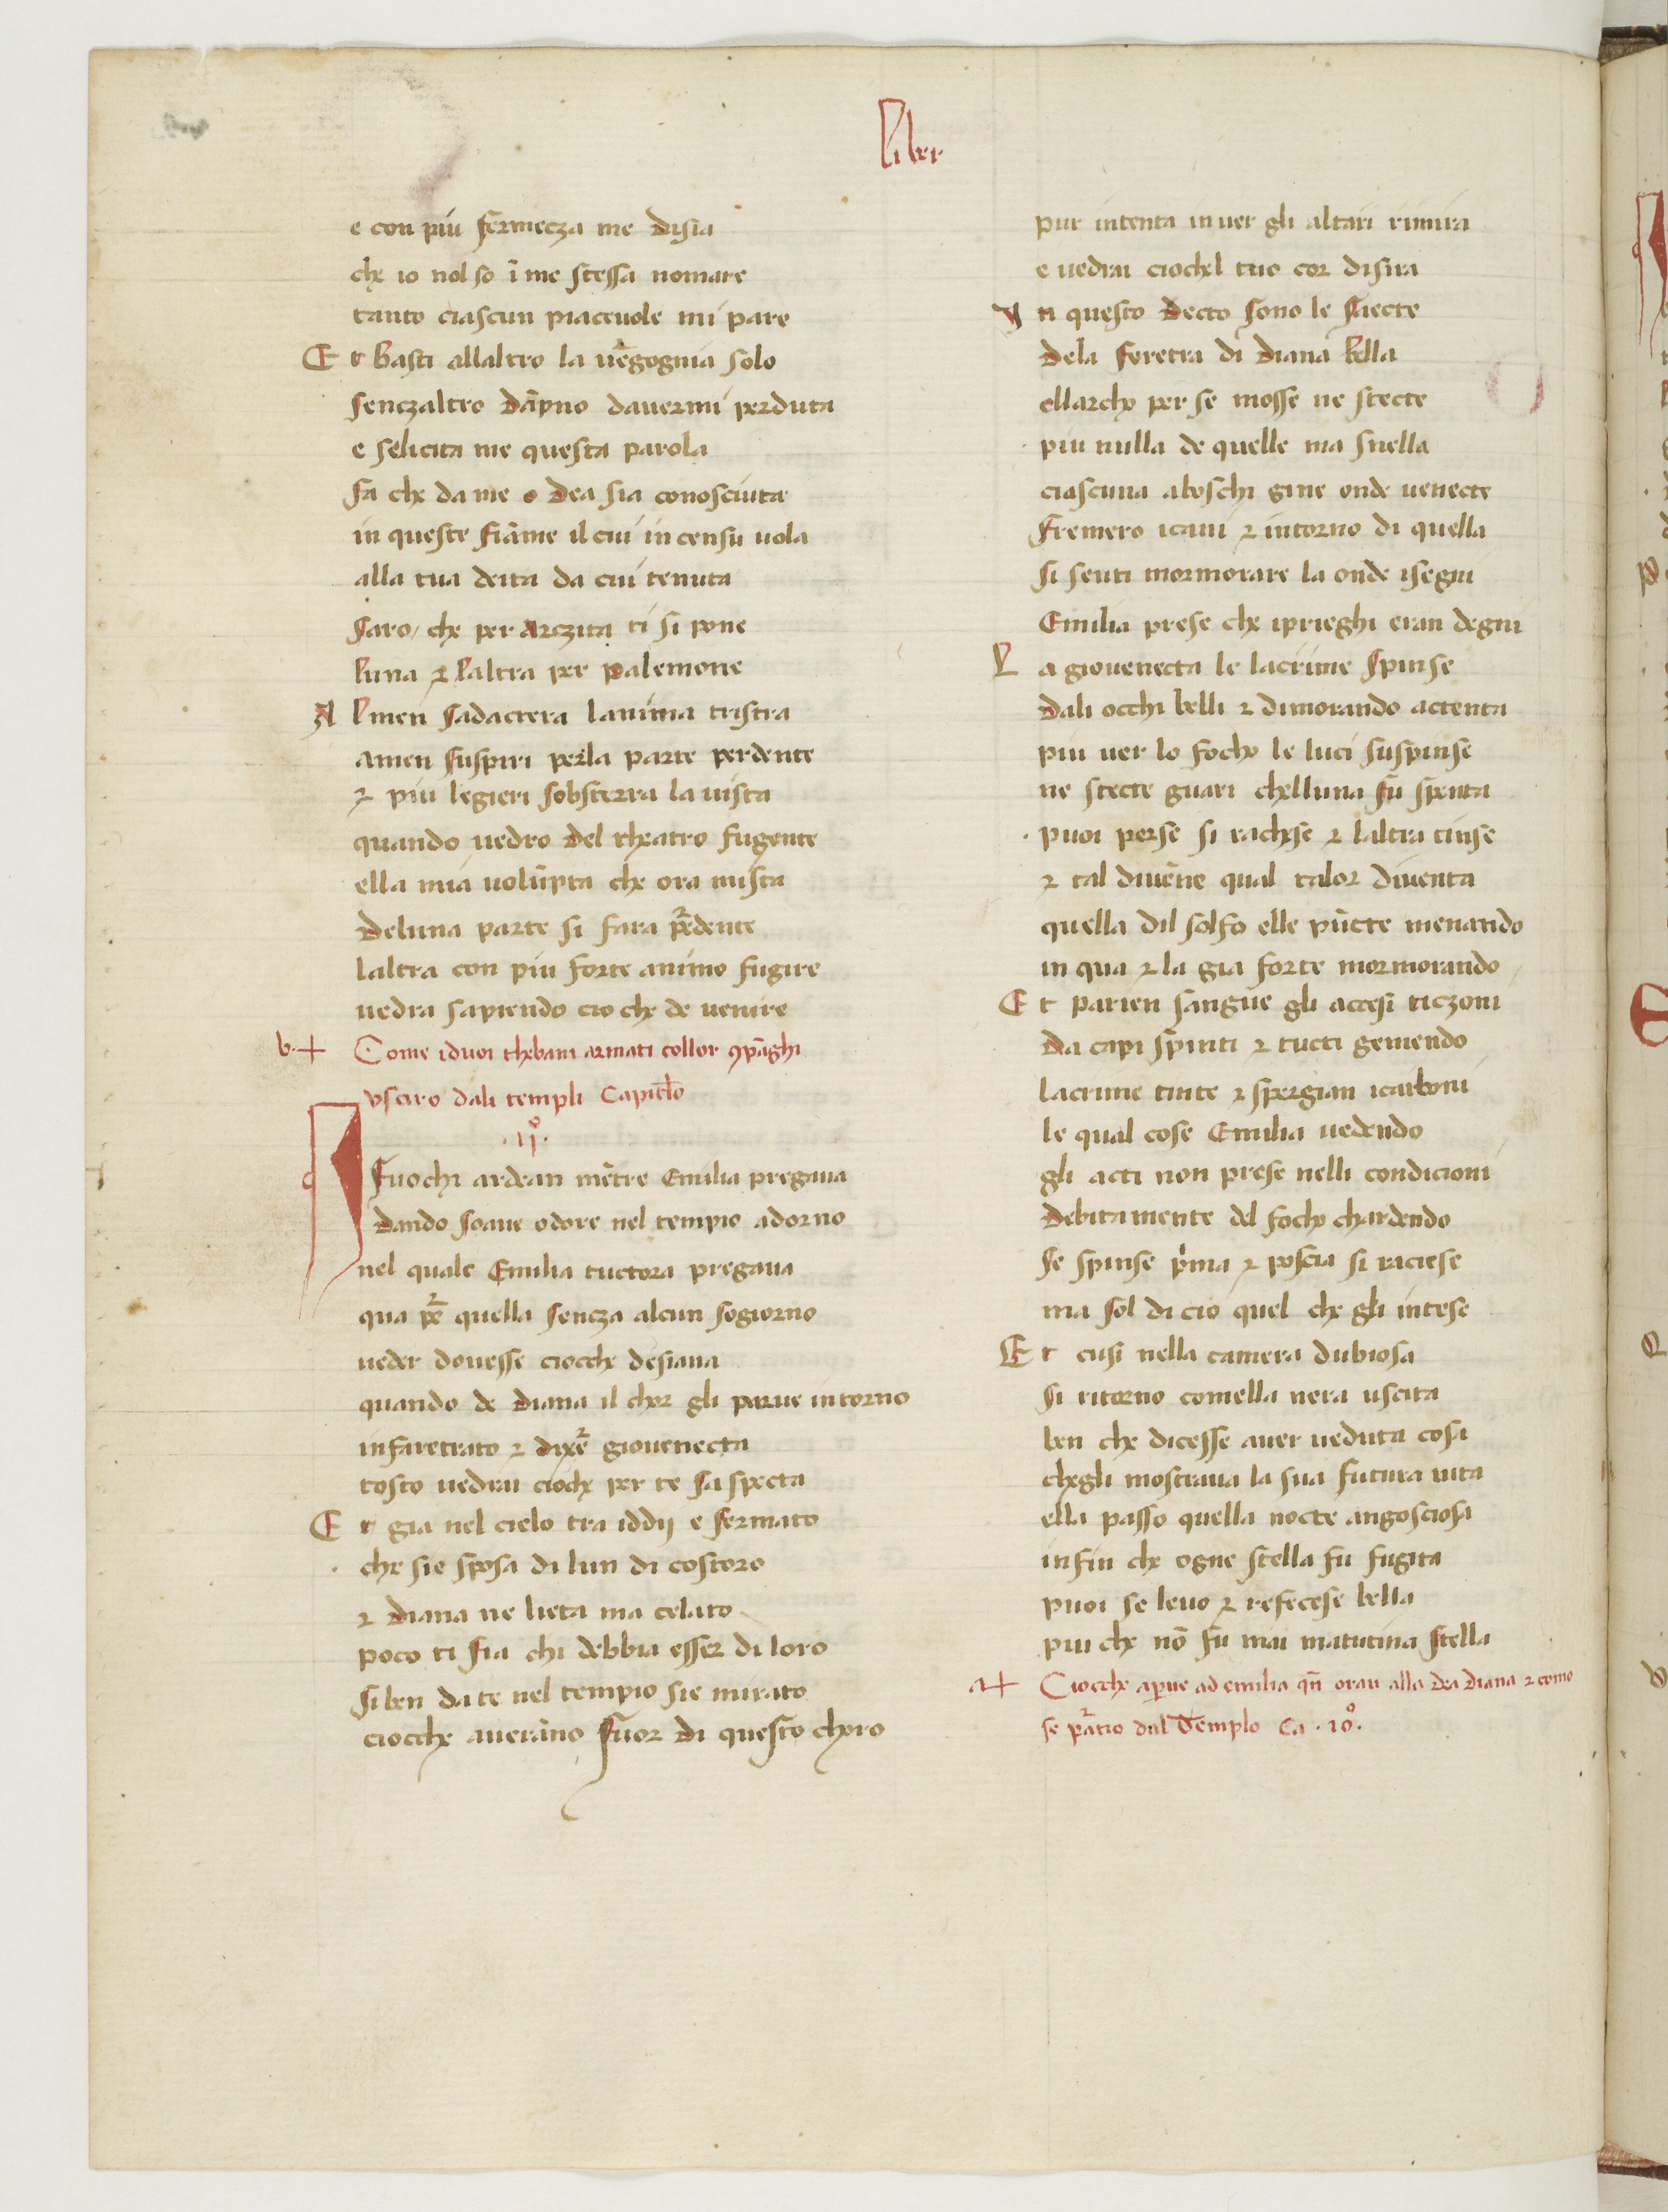 liber
e con piu fermecza me disia
che io nol so ī me stessa nomare
tanto ciascun piaceuole mi pare
Et basti allaltro la uēgognia solo
senczaltro dāpno dauermi perduta
e selicita me questa parola
fa che da me o dea sia conosciuta
in queste fiāme il cui incensu uola
alla tua deita da cui tenuta
saro / che per Arczita ti si pone
luna ⁊ laltra per palemone
Almen sadactera lanima trista
amen suspiri perla parte perdente
⁊ piu legieri sobsterra la uista
quando uedro del theatro fugente
ella mia volūpta che ora mista
deluna parte si fara p̄dente
laltra con piu forte animo fugire
uedra sapiendo cio che de uenire
b · + Come iduoi thebani armati collor ꝯpāghi
vsciro dali templi Capitl̄o
· ij° ·
I Fuochi ardean mētre Emilia pregaua
dando soaue odore nel tempio adorno
nel quale Emilia tuctora pregaua
qua p̄e quella sencza alcun sogiorno
ueder douesse ciocche desiaua
quando de diana il chor gli parue intorno
infaretrato ⁊ dixē giouenecta
tosto uedrai cioche per te saspecta
Et gia nel cielo tra iddij e fermato
che sie sposa di lun di costoro
⁊ diana ne lieta ma celato
poco ti fia chi debbia esser di loro
si ben da te nel tempio sie mirato
ciocche auerāno fuor di questo choro
pur intenta inuer gli altari rimira
e uedrai ciochel tuo cor disira
Yn questo decto sono le saecte
dela feretra di diana bella
ellarcho per se mosse ne stecte
piu nulla de quelle ma snella
ciascuna aboschi gine onde uenecte
fremero icani ⁊ intorno di quella
si senti mormorare la onde isegni
Emilia prese che iprieghi eran degni
La giouenecta le lacrime spinse
dali occhi belli ⁊ dimorando actenta
piu uer lo focho le luci suspinse
ne stecte guari chelluna fu spenta
puoi perse si rachese ⁊ laltra tinse
⁊ tal diuēne qual talor diuenta
quella dil solfo elle pūcte menando
in qua ⁊ la gia forte mormorando
Et parien sangue gli accesi ticzoni
da capi spinti ⁊ tucti gemendo
lacrime tinte ⁊ spergian icarboni
le qual cose Emilia uedendo
gli acti non prese nelli condicioni
debitamente del focho chardendo
se spinse p̄ma ⁊ poscia si raciese
ma sol di cio quel che gli intese
Et cusi nella camera dubiosa
si ritorno comella nera uscita
ben che dicesse auer ueduta cosa
chegli mostraua la sua futura uita
ella passo quella nocte angosciosa
infin che ogne stella fu fugita
puoi se leuo ⁊ refecese bella
piu che nō fu mai matutina stella
a + Ciocche apue ad emilia qn̄ oraū alla dea diana ⁊ como
se p̄atio dal Templo Ca · 10° ·